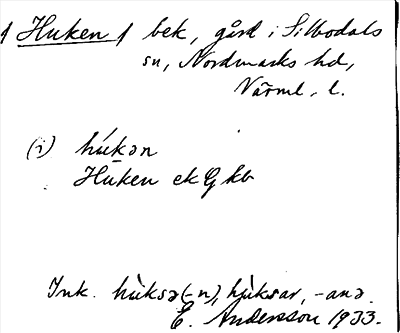 Huken bek, gård i Silbodals
sn, Nordmarks hd,
Värml. l.
(i) húkən
Huken ek G kb
Ink. hùksə(-n), hùksar, -anə.
E. Andersson 1933.